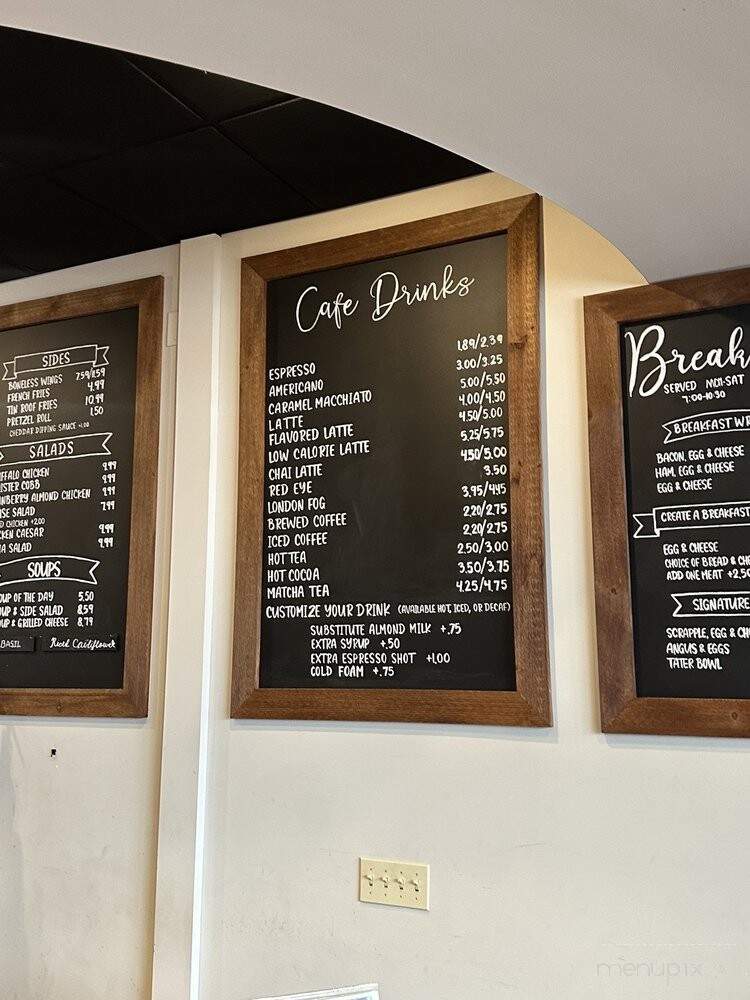 SIDES
BONELESS WINGS 7.59/11.59
FRENCH FRIES 4.99
TIN ROOF FRIES 10.99
PRETZEL ROLL 1.50
CHEDDAR DIPPING SAUCE +1.00
SALADS
CHICKEN 9.99
COBB 9.99
ALMOND CHICKEN 9.99
SALAD 7.99
CHICKEN +2.00
CAESAR 9.99
SALAD 9.99
SOUPS
OF THE DAY 5.50
& SIDE SALAD 8.59
& GRILLED CHEESE 8.79
BASIL
Cafe Drinks
ESPRESSO 1.89/2.39
AMERICANO 3.00/3.25
CARAMEL MACCHIATO 5.00/5.50
LATTE 4.00/4.50
FLAVORED LATTE 4.50/5.00
LOW CALORIE LATTE 5.25/5.75
CHAI LATTE 4.50/5.00
RED EYE 3.50
LONDON FOG 3.95/4.45
BREWED COFFEE 2.20/2.75
ICED COFFEE 2.20/2.75
HOT TEA 2.50/3.00
HOT COCOA 3.50/3.75
MATCHA TEA 4.25/4.75
CUSTOMIZE YOUR DRINK (AVAILABLE HOT, ICED, OR DECAF)
SUBSTITUTE ALMOND MILK +.75
EXTRA SYRUP +.50
EXTRA ESPRESSO SHOT +1.00
COLD FOAM +.75
Break
SERVED MON-SAT
7:00-10:30
BREAKFAST WR
BACON, EGG & CHEESE
HAM, EGG & CHEESE
EGG & CHEESE
CREATE A BREAKFAST
EGG & CHEESE
CHOICE OF BREAD & CHE
ADD ONE MEAT +2.50
SIGNATURE
SCRAPPLE, EGG & CH
ANGUS & EGGS
TATER BOWL
menupix